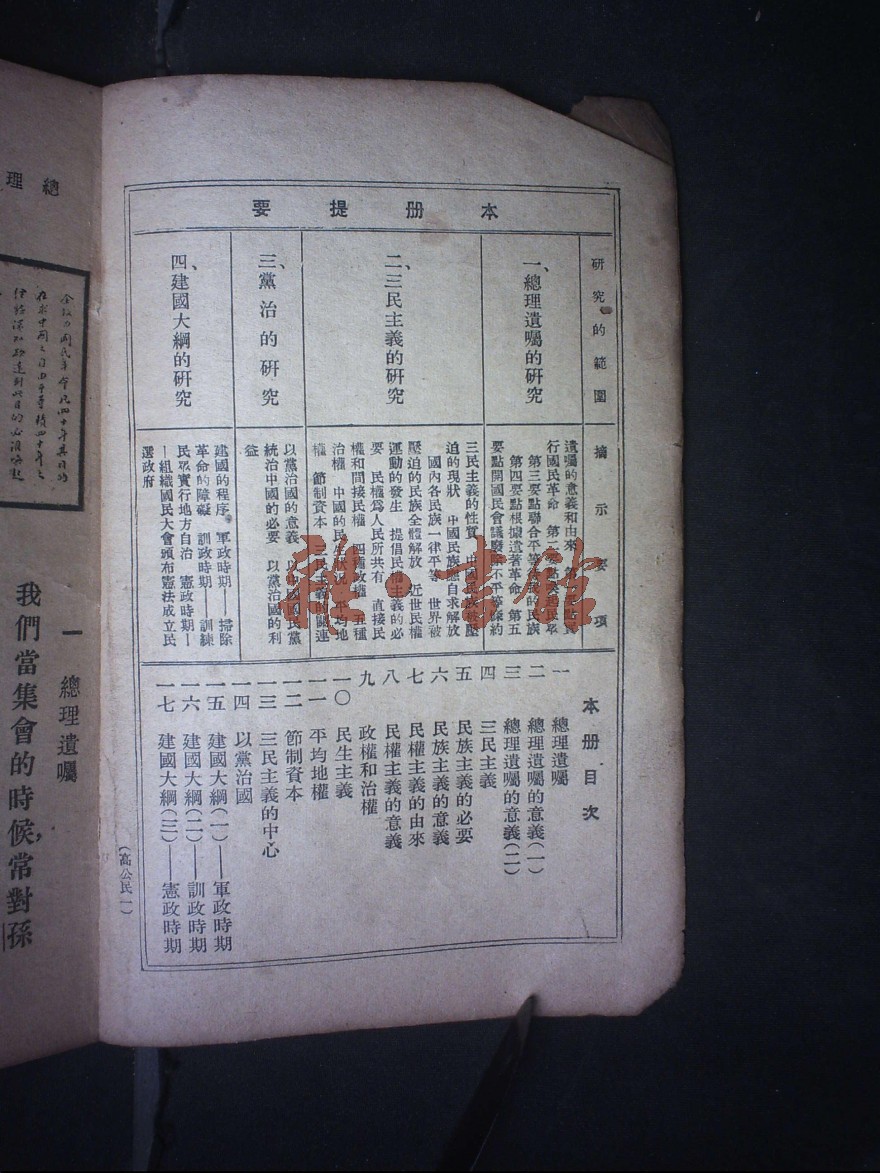 本册提要
研究的範圍
摘示要項
一、總理遺囑的研究
遺囑的意義和由來
行國民革命
第三要點聯合平等待我的民族
第四要點根據遺著革命 第五
要點開國民會議廢除不平等條約
二、三民主義的研究
三民主義的性質 中國民族被壓
迫的現狀 中國民族應自求解放
國內各民族一律平等 世界被
壓迫的民族全體解放 近世民權
運動的發生 提倡民權主義的必
要 民權爲人民所共有 直接民
權和間接民權 四種政權 五種
治權 中國的民生狀況 平均地
權 節制資本 三民主義的關連
三、黨治的研究
以黨治國的意義 以中國國民黨
統治中國的必要 以黨治國的利
益
四、建國大綱的研究
建國的程序 軍政時期——掃除
革命的障礙 訓政時期——訓練
民眾實行地方自治 憲政時期—
—組織國民大會頒布憲法成立民
選政府
本册目次
一 總理遺囑
二 總理遺囑的意義(一)
三 總理遺囑的意義(二)
四 三民主義
五 民族主義的必要
六 民族主義的意義
七 民權主義的由來
八 民權主義的意義
九 政權和治權
一〇 民生主義
一一 平均地權
一二 節制資本
一三 三民主義的中心
一四 以黨治國
一五 建國大綱(一)——軍政時期
一六 建國大綱(二)——訓政時期
一七 建國大綱(三)——憲政時期
(高公民一)
總理
余致力國民革命凡四十年其目的
在求中國之自由平等積四十年之
經驗深知欲達到此目的必須喚起
一 總理遺囑
我們當集會的時候，常對孫